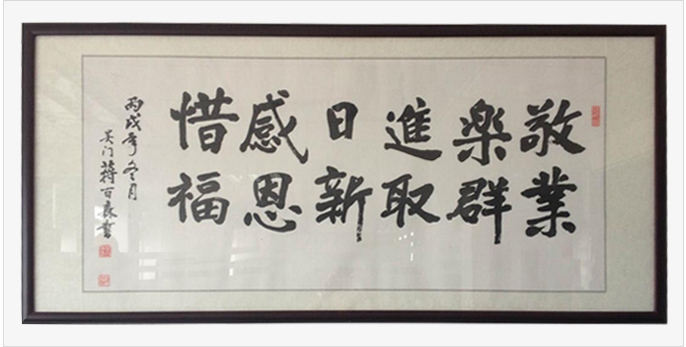 敬業
樂群
進取
日新
感恩
惜福
丙戌年冬月
吴门蒋百森書